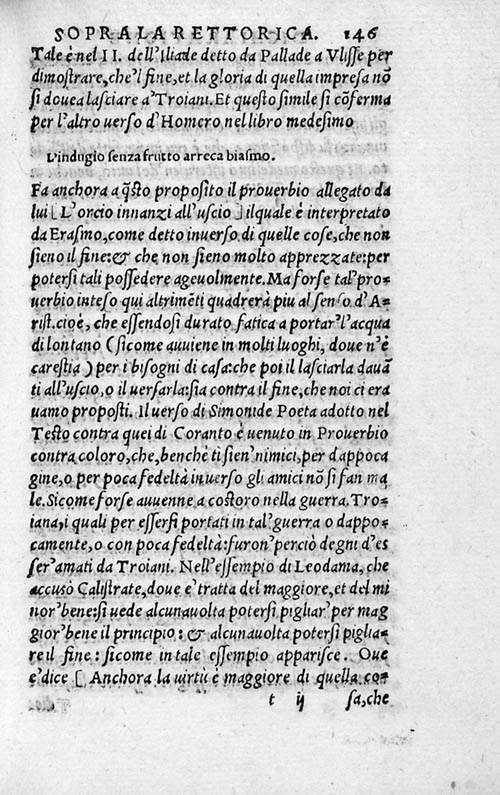 SOPRA LA RETTORICA. 146
Tale è nel II. dell'Iliade detto da Pallade a Vlisse per
dimostrare, che'l fine, et la gloria di quella impresa nō
si douea lasciare a' Troiani. Et questo simile si cōferma
per l'altro verso d'Homero nel libro medesimo
L'indugio senza frutto arreca biasmo.
Fa anchora a q̃sto proposito il prouerbio allegato da
lui [L'orcio innanzi all'uscio] il quale è interpretato
da Erasmo, come detto inuerso di quelle cose, che non
sieno il fine: & che non sieno molto apprezzate: per
potersi tali possedere ageuolmente. Ma forse tal' pro-
uerbio inteso qui altrimēti quadrerà piu al senso d'A-
rist. cioè, che essendosi durato fatica a portar' l'acqua
di lontano (sicome auuiene in molti luoghi, doue n'è
carestia) per i bisogni di casa: che poi il lasciarla dauā
ti all'uscio, o il uersarla: sia contra il fine, che noi ci era
uamo proposti. Il uerso di Simonide Poeta adotto nel
Testo contra quei di Coranto è uenuto in Prouerbio
contra coloro, che, benchè ti sien' nimici, per dappoca
gine, o per poca fedeltà inuerso gli amici nō si fan ma
le. Sicome forse auuenne a costoro nella guerra. Tro-
iana, i quali per essersi portati in tal' guerra o dappo-
camente, o con poca fedeltà: furon' perciò degni d'es
ser' amati da Troiani. Nell'essempio di Leodama, che
accusò Calistrate, doue è tratta del maggiore, et del mi
nor' bene: si vede alcunauolta potersi pigliar' per mag
gior' bene il principio: & alcunauolta potersi piglia-
re il fine: sicome in tale essempio apparisce. Oue
e' dice [Anchora la uirtù è maggiore di quella co-
t ij sa, che